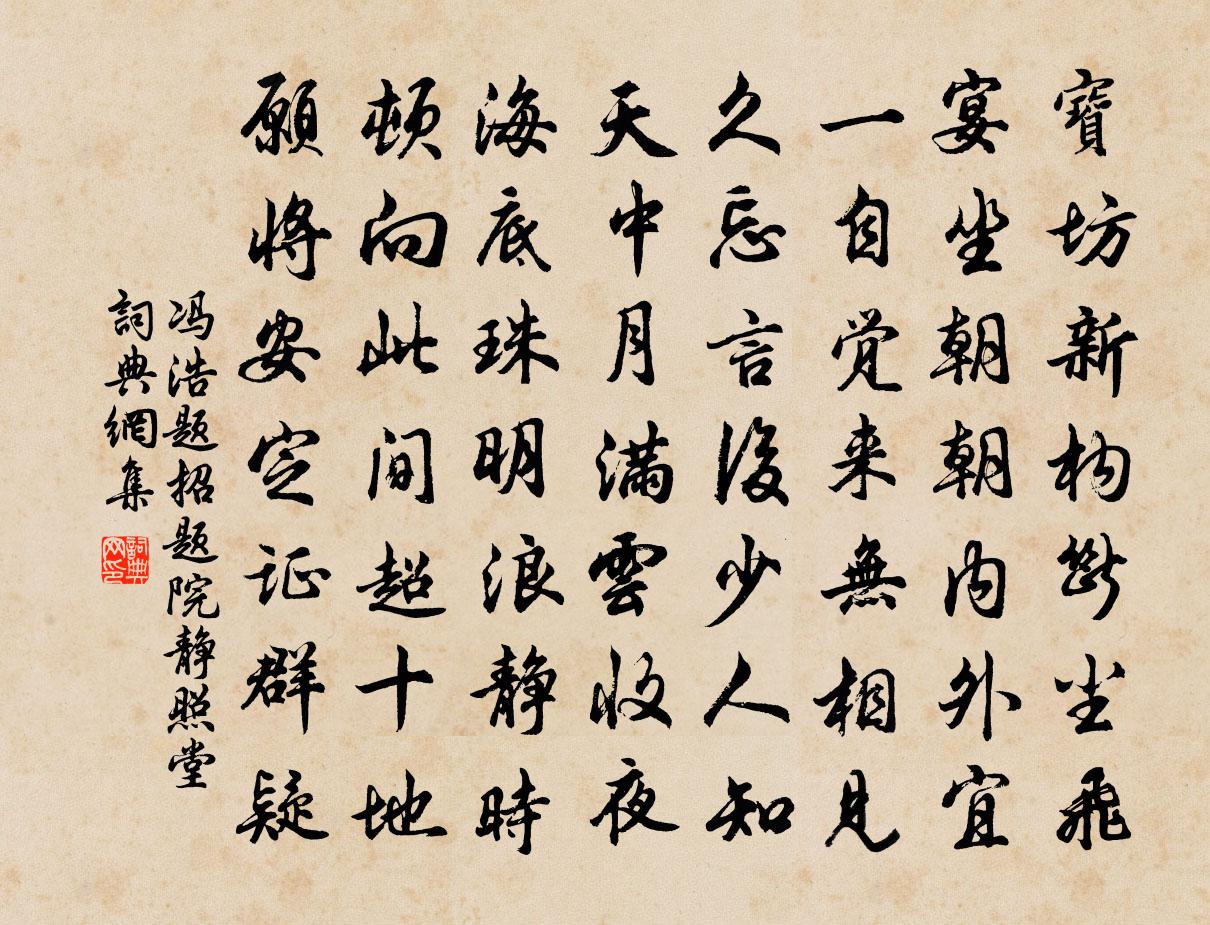 寶坊新构斷尘飛
宴坐朝朝内外宜
一自觉来無相見
久忘言後少人知
天中月滿雲收夜
海底珠明浪静時
頓向此间超十地
願将安定证群疑
冯浩题招题院静照堂
詞典網集
詞典网印